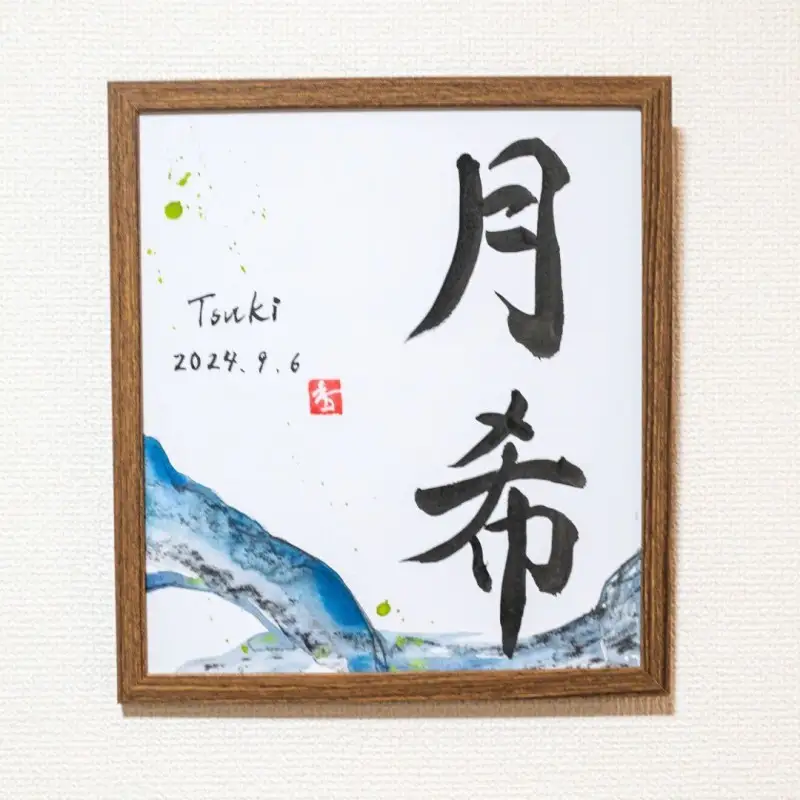 月希
Tsuki
2024.9.6